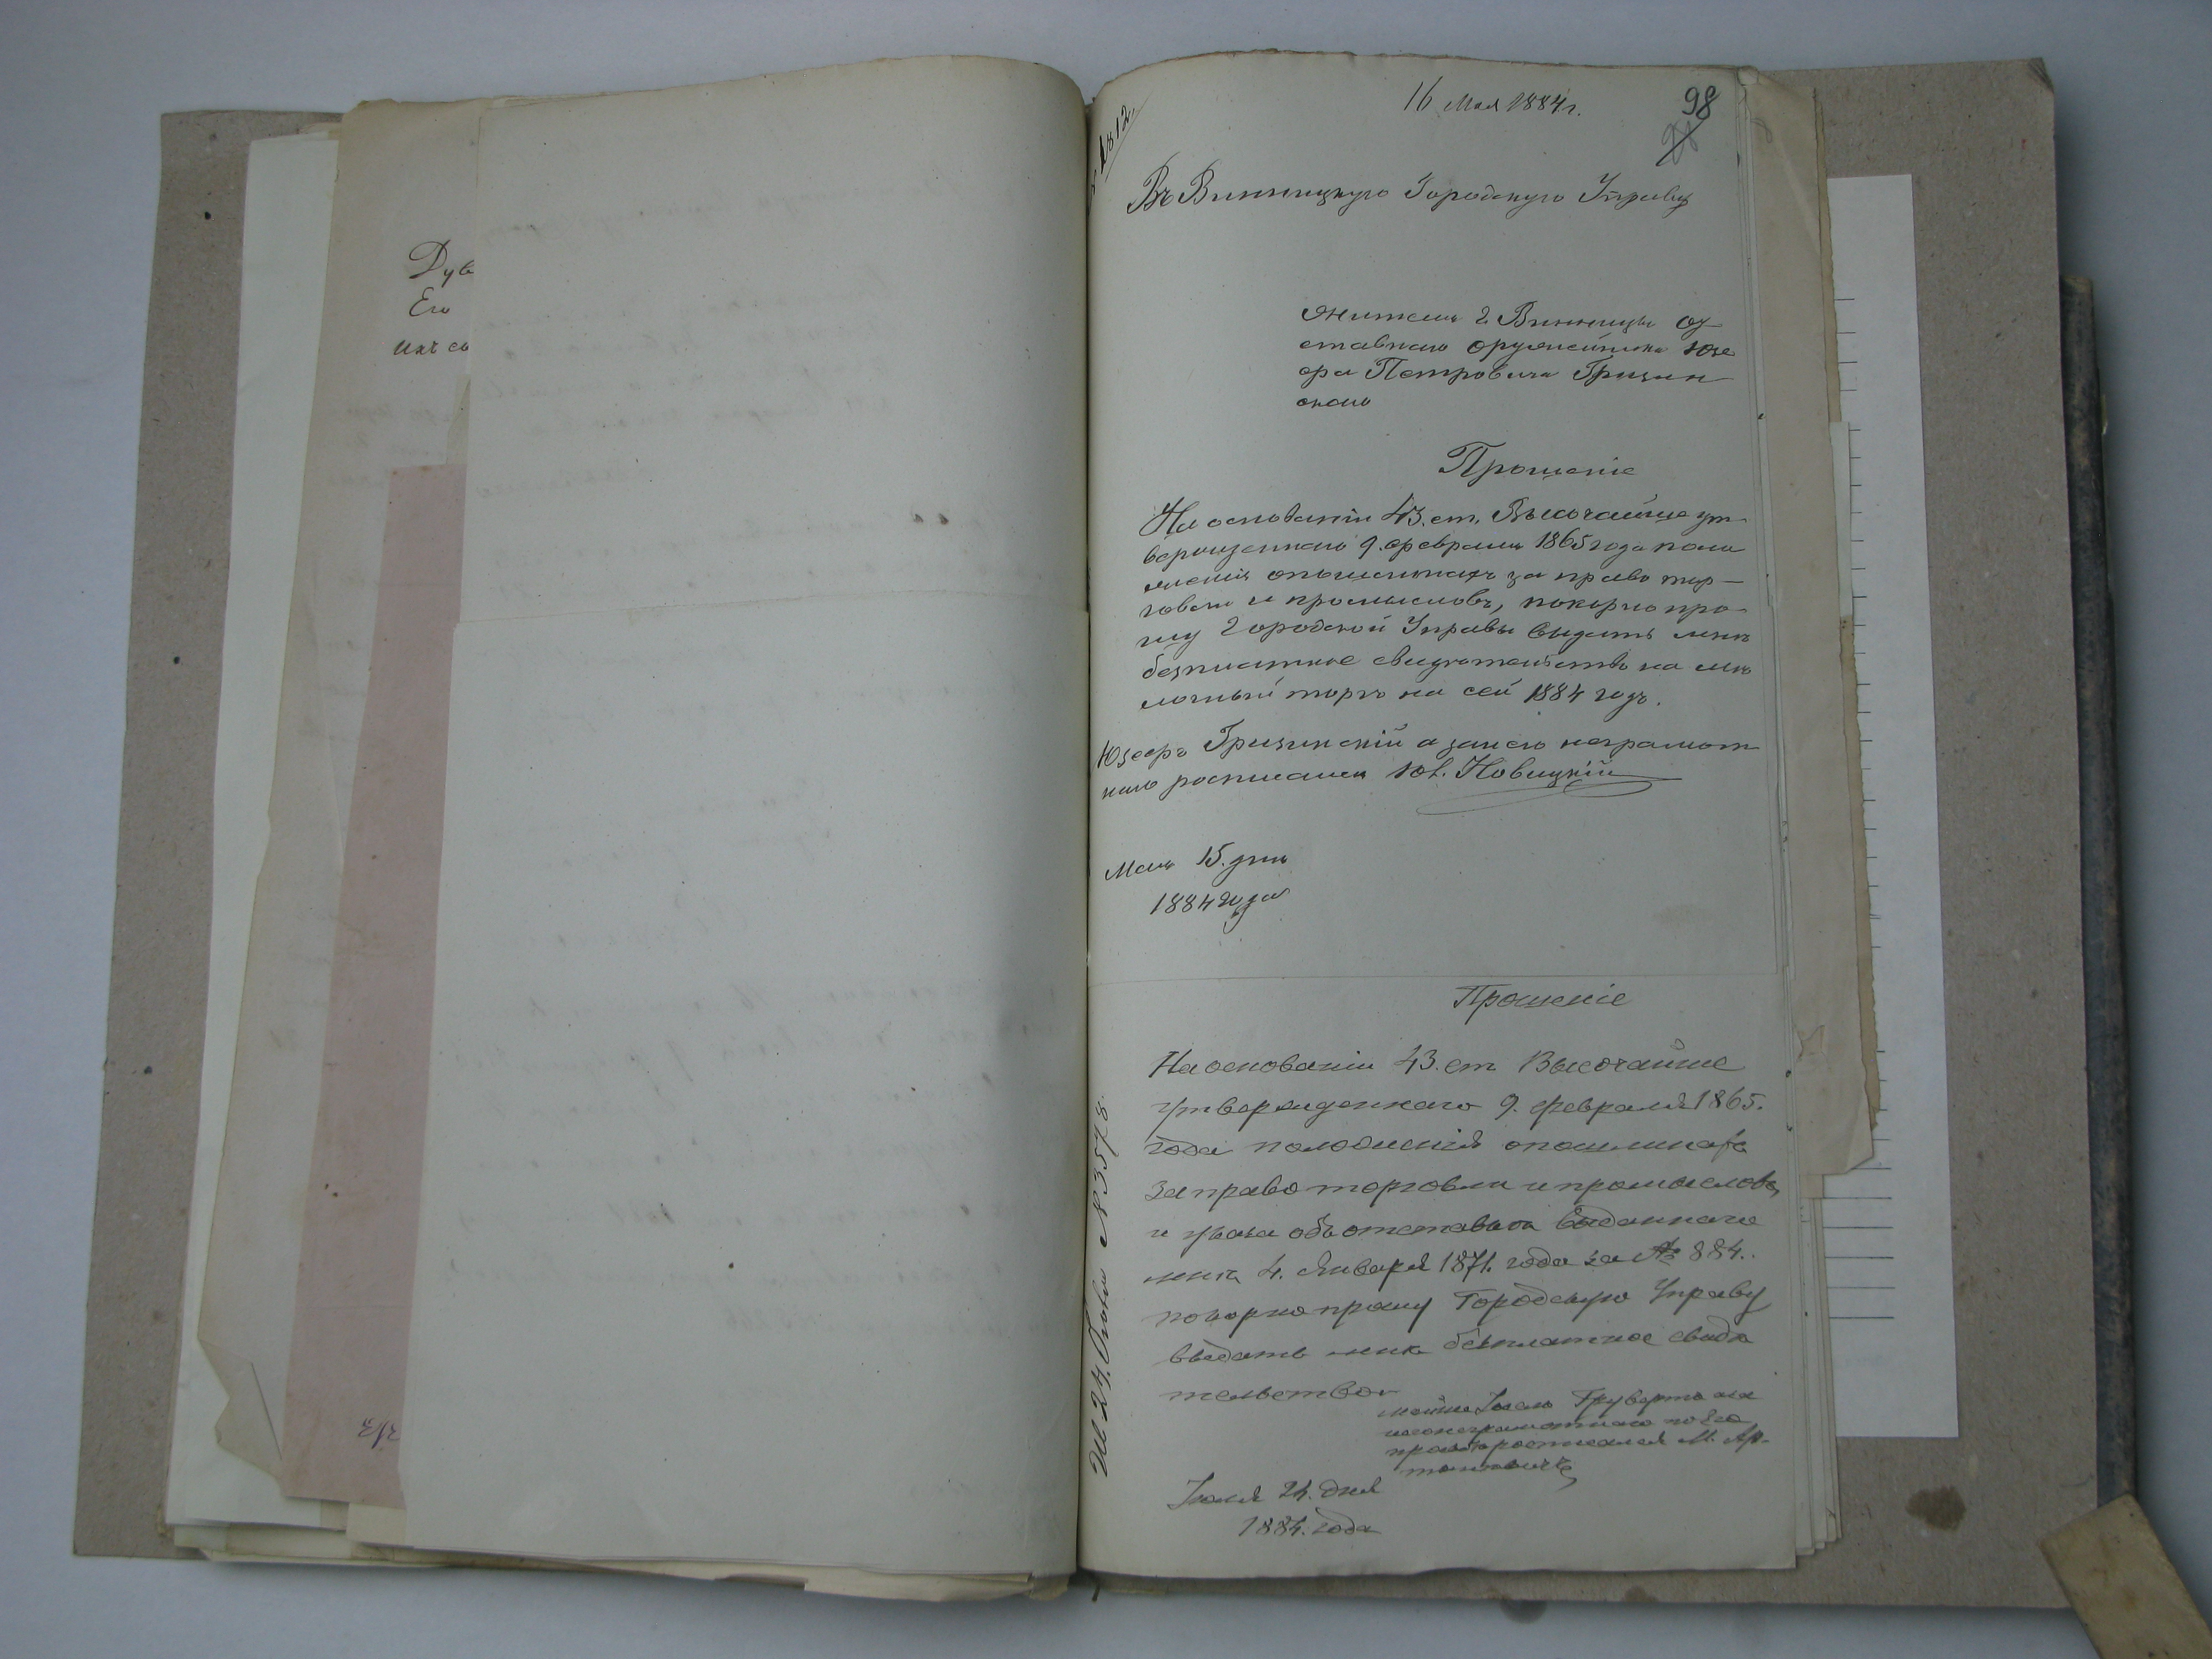 Дув
Его
ихъ со
16 Мая 1884 г.
98
1812
Въ Винницкую Городскую Управу
Жителя г. Винницы От
ставнаго оружейника Юзе
фа Петровича Грицин
скаго
Прошеніе
На основаніи 43. ст. Высочайше ут
вержденнаго 9. февраля 1865 года поло
женія о пошлинахъ за право тор-
говли и промысловъ, покорно про
шу Городской Управы выдать мнѣ
безплатное свидѣтельство на мѣ
лочный торгъ на сей 1884 годъ.
Юзефъ Грицинскій а за него неграмот
наго росписался Новицкій
Мая 15. дня
1884 года
Прошеніе
На основаніи 43. ст Высочайше
утвержденнаго 9. февраля 1865.
года положенія о пошлинахъ
за право торговли и промысловъ,
и указа объ отставкѣ выданнаго
мнѣ 4. Января 1871. года за № 884.
покорно прошу Городскую Управу
выдать мнѣ безплатное свидѣ
тельство
неграмотнаго по его
прозбѣ росписался М. Ар-
Іюля 24. дня
1884. года
24. № 3578.